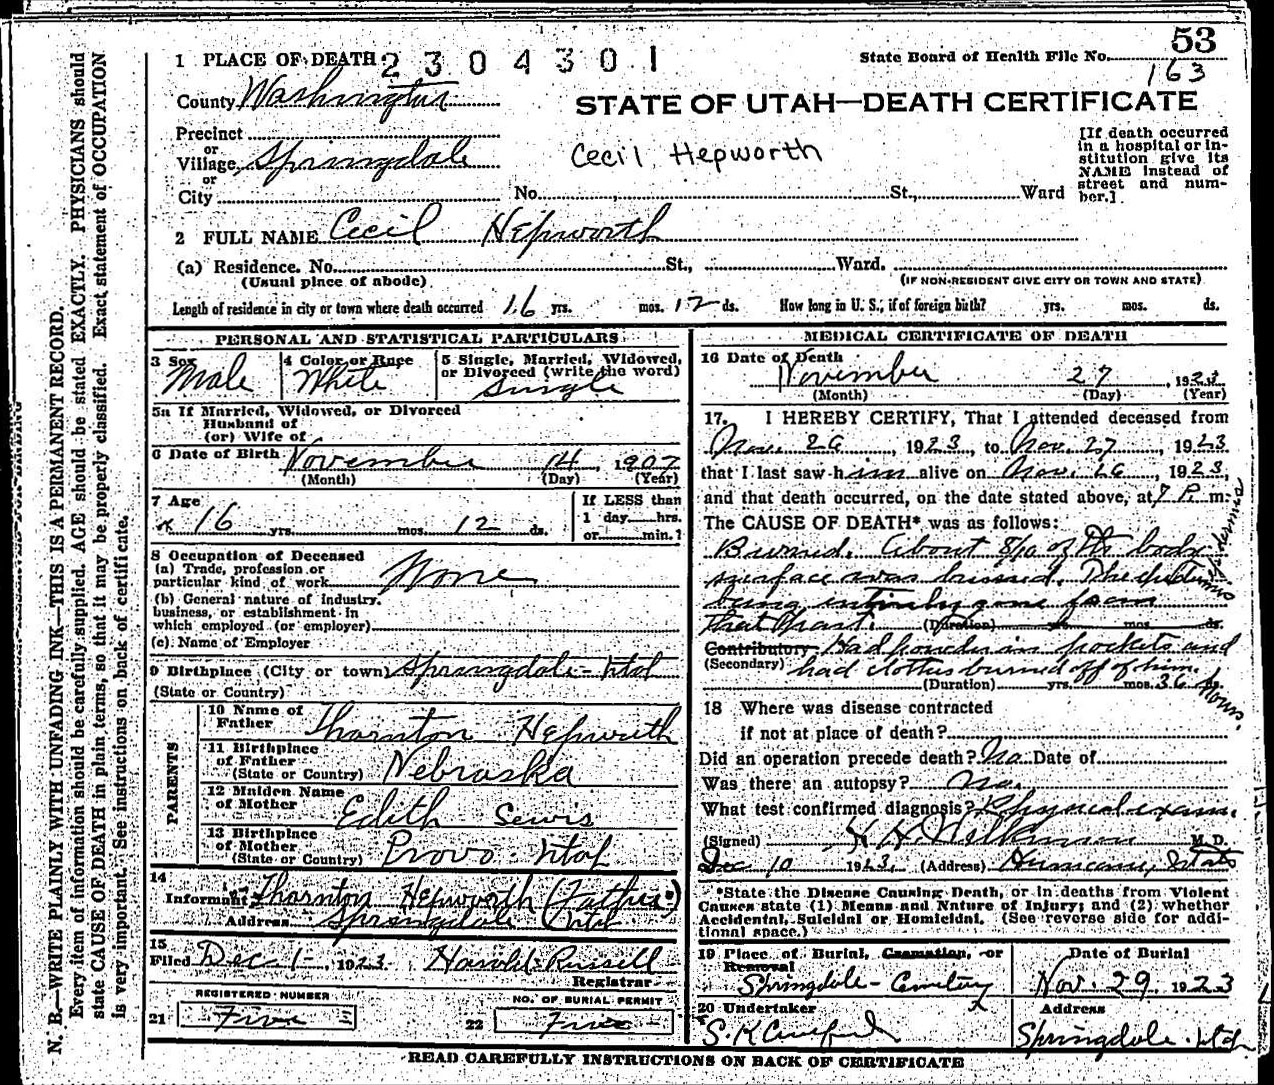 53
1 PLACE OF DEATH 2304301
State Board of Health File No. 163
County Washington
STATE OF UTAH—DEATH CERTIFICATE
Precinct
or
Village Springdale
or
City
Cecil Hepworth
[If death occurred
in a hospital or in-
stitution give its
NAME instead of
street and num-
ber.]
No. St., Ward
2 FULL NAME Cecil Hepworth
(a) Residence. No. St., Ward.
(Usual place of abode)
(IF NON-RESIDENT GIVE CITY OR TOWN AND STATE)
Length of residence in city or town where death occurred 16 yrs. mos. 12 ds. How long in U. S., if of foreign birth? yrs. mos. ds.
PERSONAL AND STATISTICAL PARTICULARS
3 Sex
Male
4 Color or Race
White
5 Single, Married, Widowed,
or Divorced (write the word)
Single
5a If Married, Widowed, or Divorced
Husband of
(or) Wife of
6 Date of Birth November 14, 1907
(Month) (Day) (Year)
7 Age
16 yrs. mos. 12 ds.
If LESS than
1 day hrs.
or min.?
8 Occupation of Deceased
(a) Trade, profession or
particular kind of work None
(b) General nature of industry,
business, or establishment in
which employed (or employer)
(c) Name of Employer
9 Birthplace (City or town) Springdale - Utah
(State or Country)
PARENTS
10 Name of
Father Thornton Hepworth
11 Birthplace
of Father
(State or Country) Nebraska
12 Maiden Name
of Mother Edith
13 Birthplace
of Mother
(State or Country) Provo - Utah
14
Informant Thornton Hepworth (Father)
Address Springdale Utah
15
Filed Dec 1-, 1923. Harold Russell
Registrar
REGISTERED NUMBER
21 Five
NO. OF BURIAL PERMIT
22 Five
MEDICAL CERTIFICATE OF DEATH
16 Date of Death
November 27, 1923
(Month) (Day) (Year)
17. I HEREBY CERTIFY, That I attended deceased from
Nov. 26, 1923, to Nov. 27, 1923
that I last saw him alive on Nov. 26, 1923,
and that death occurred, on the date stated above, at 7 P. m.
The CAUSE OF DEATH* was as follows:
Burned. About 8/10 of the body
surface was burned. The epidermis
being entirely gone from
that part. (Duration) yrs. mos. ds.
Contributory Had powder in pockets and
(Secondary) had clothes burned off of him.
(Duration) yrs. mos. 36 ds. Hours.
18 Where was disease contracted
if not at place of death?
Did an operation precede death? No Date of
Was there an autopsy? No.
What test confirmed diagnosis? Physical exam.
(Signed) Wilkinson M. D.
Dec 10 1923. (Address) Hurricane, Utah
*State the Disease Causing Death, or in deaths from Violent
Causes state (1) Means and Nature of Injury; and (2) whether
Accidental, Suicidal or Homicidal. (See reverse side for addi-
tional space.)
19 Place of Burial, Cremation, or
Removal
Springdale - Cemetery
Date of Burial
Nov. 29. 1923
20 Undertaker
S. K.
Address
Springdale - Utah
READ CAREFULLY INSTRUCTIONS ON BACK OF CERTIFICATE
N. B.—WRITE PLAINLY WITH UNFADING INK—THIS IS A PERMANENT RECORD.
Every item of information should be carefully supplied. AGE should be stated EXACTLY. PHYSICIANS should
state CAUSE OF DEATH in plain terms, so that it may be properly classified. Exact statement of OCCUPATION
is very important. See instructions on back of certificate.